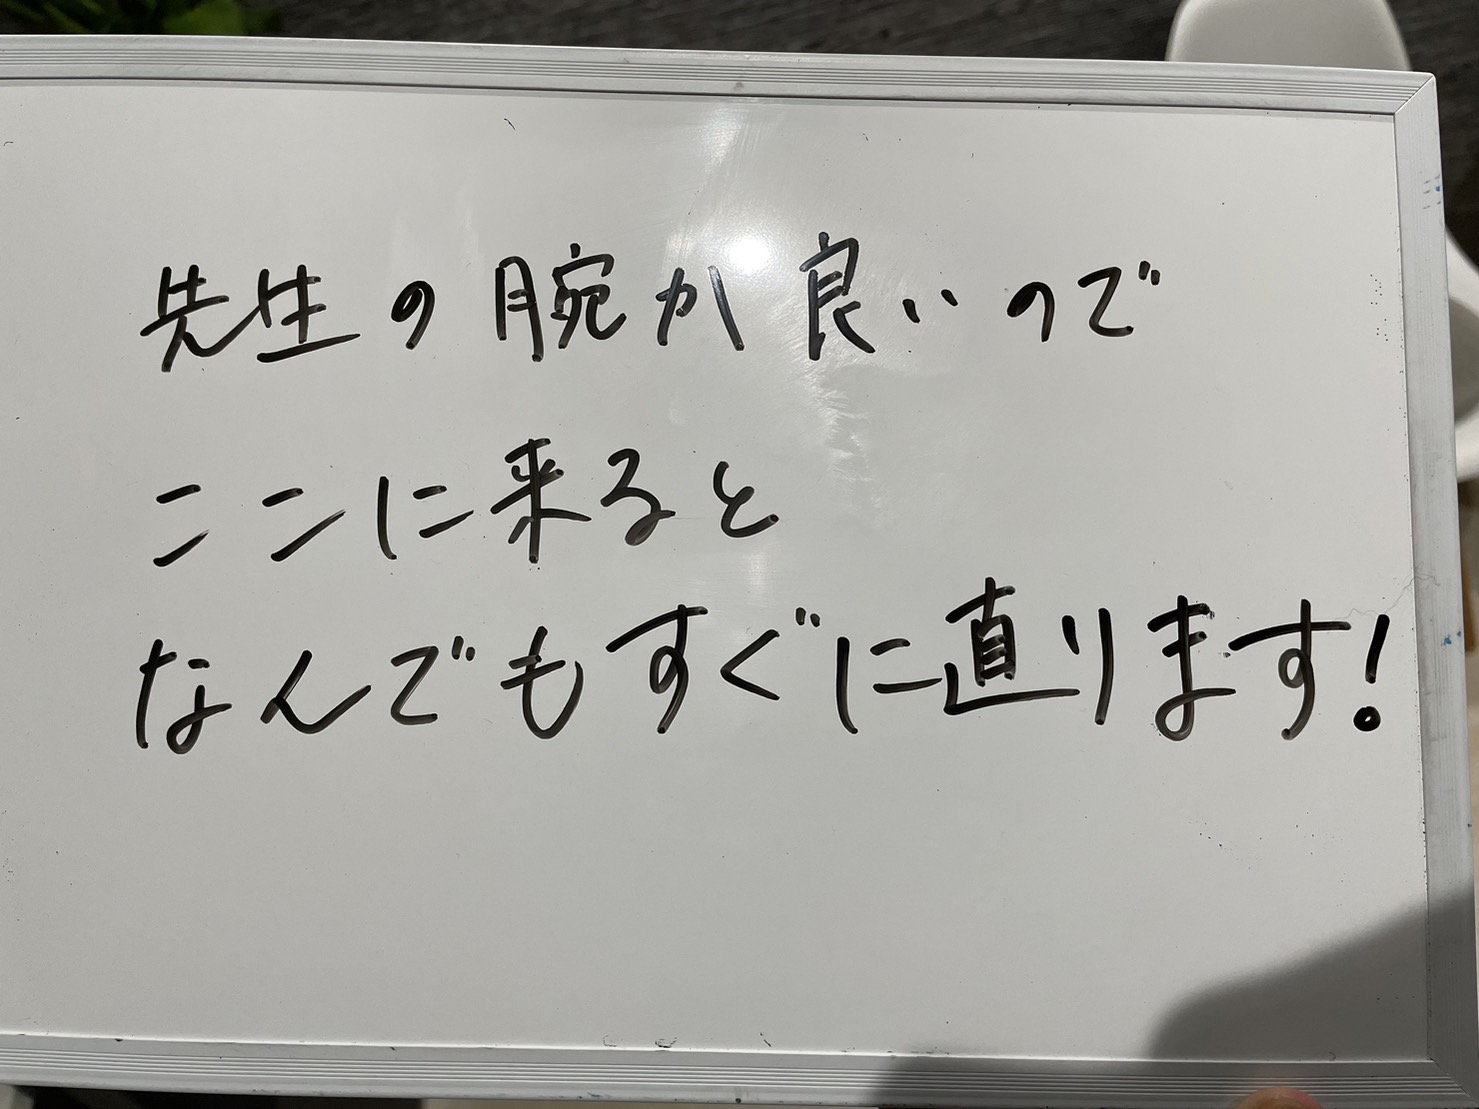 先生の腕が良いので
ここに来ると
なんでもすぐに直ります!